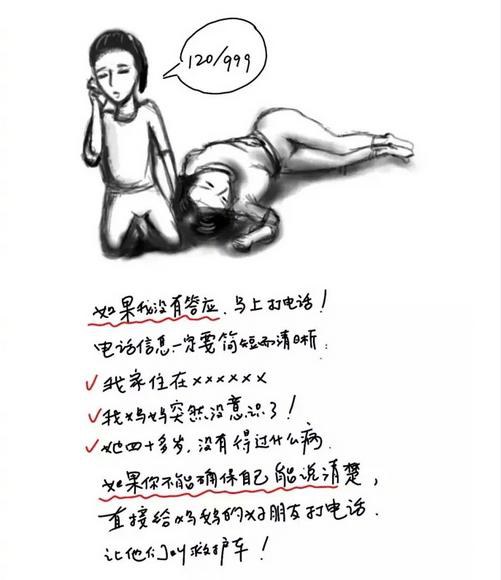 120/999
如果我没有答应,马上打电话!
电话信息一定要简短而清晰:
我家住在××××××
我妈妈突然没意识了!
她四十多岁,没有得过什么病.
如果你不能确保自己能说清楚,
直接给妈妈的好朋友打电话.
让他们叫救护车!